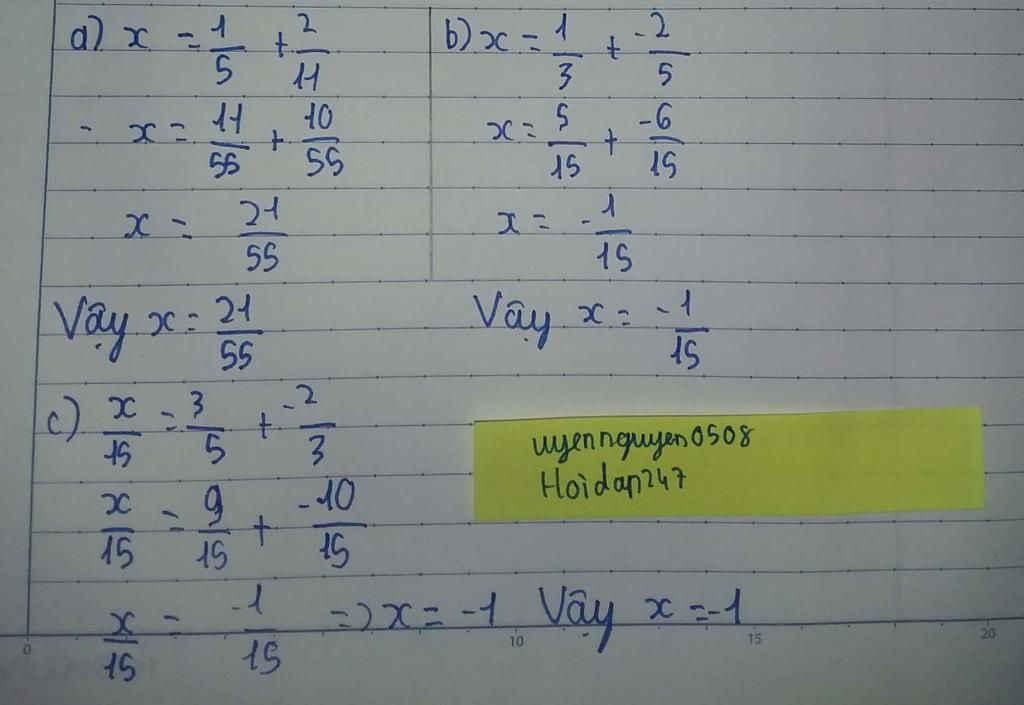 a) x = 1/5 + 2/11
- x = 11/55 + 10/55
x = 21/55
Vậy x = 21/55
b) x = 1/3 + -2/5
x = 5/15 + -6/15
x = -1/15
Vậy x = -1/15
c) x/15 = 3/5 + -2/3
x/15 = 9/15 + -10/15
x/15 = -1/15 => x = -1 Vậy x = -1
uyennguyen0508
Hoidap247
0 10 15 20